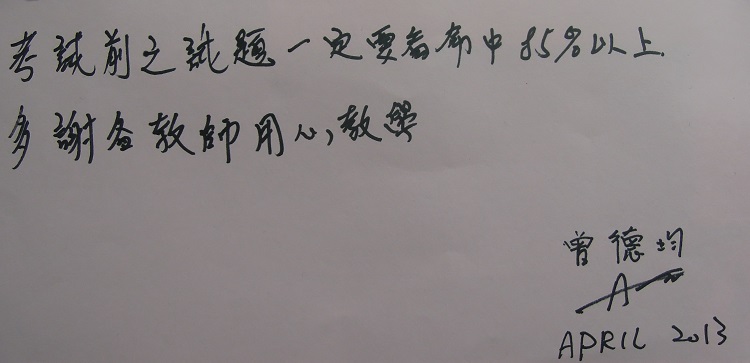 考試前之試題一定要看常中85%以上.
多謝各教師用心教學
曾德均
A
APRIL 2013